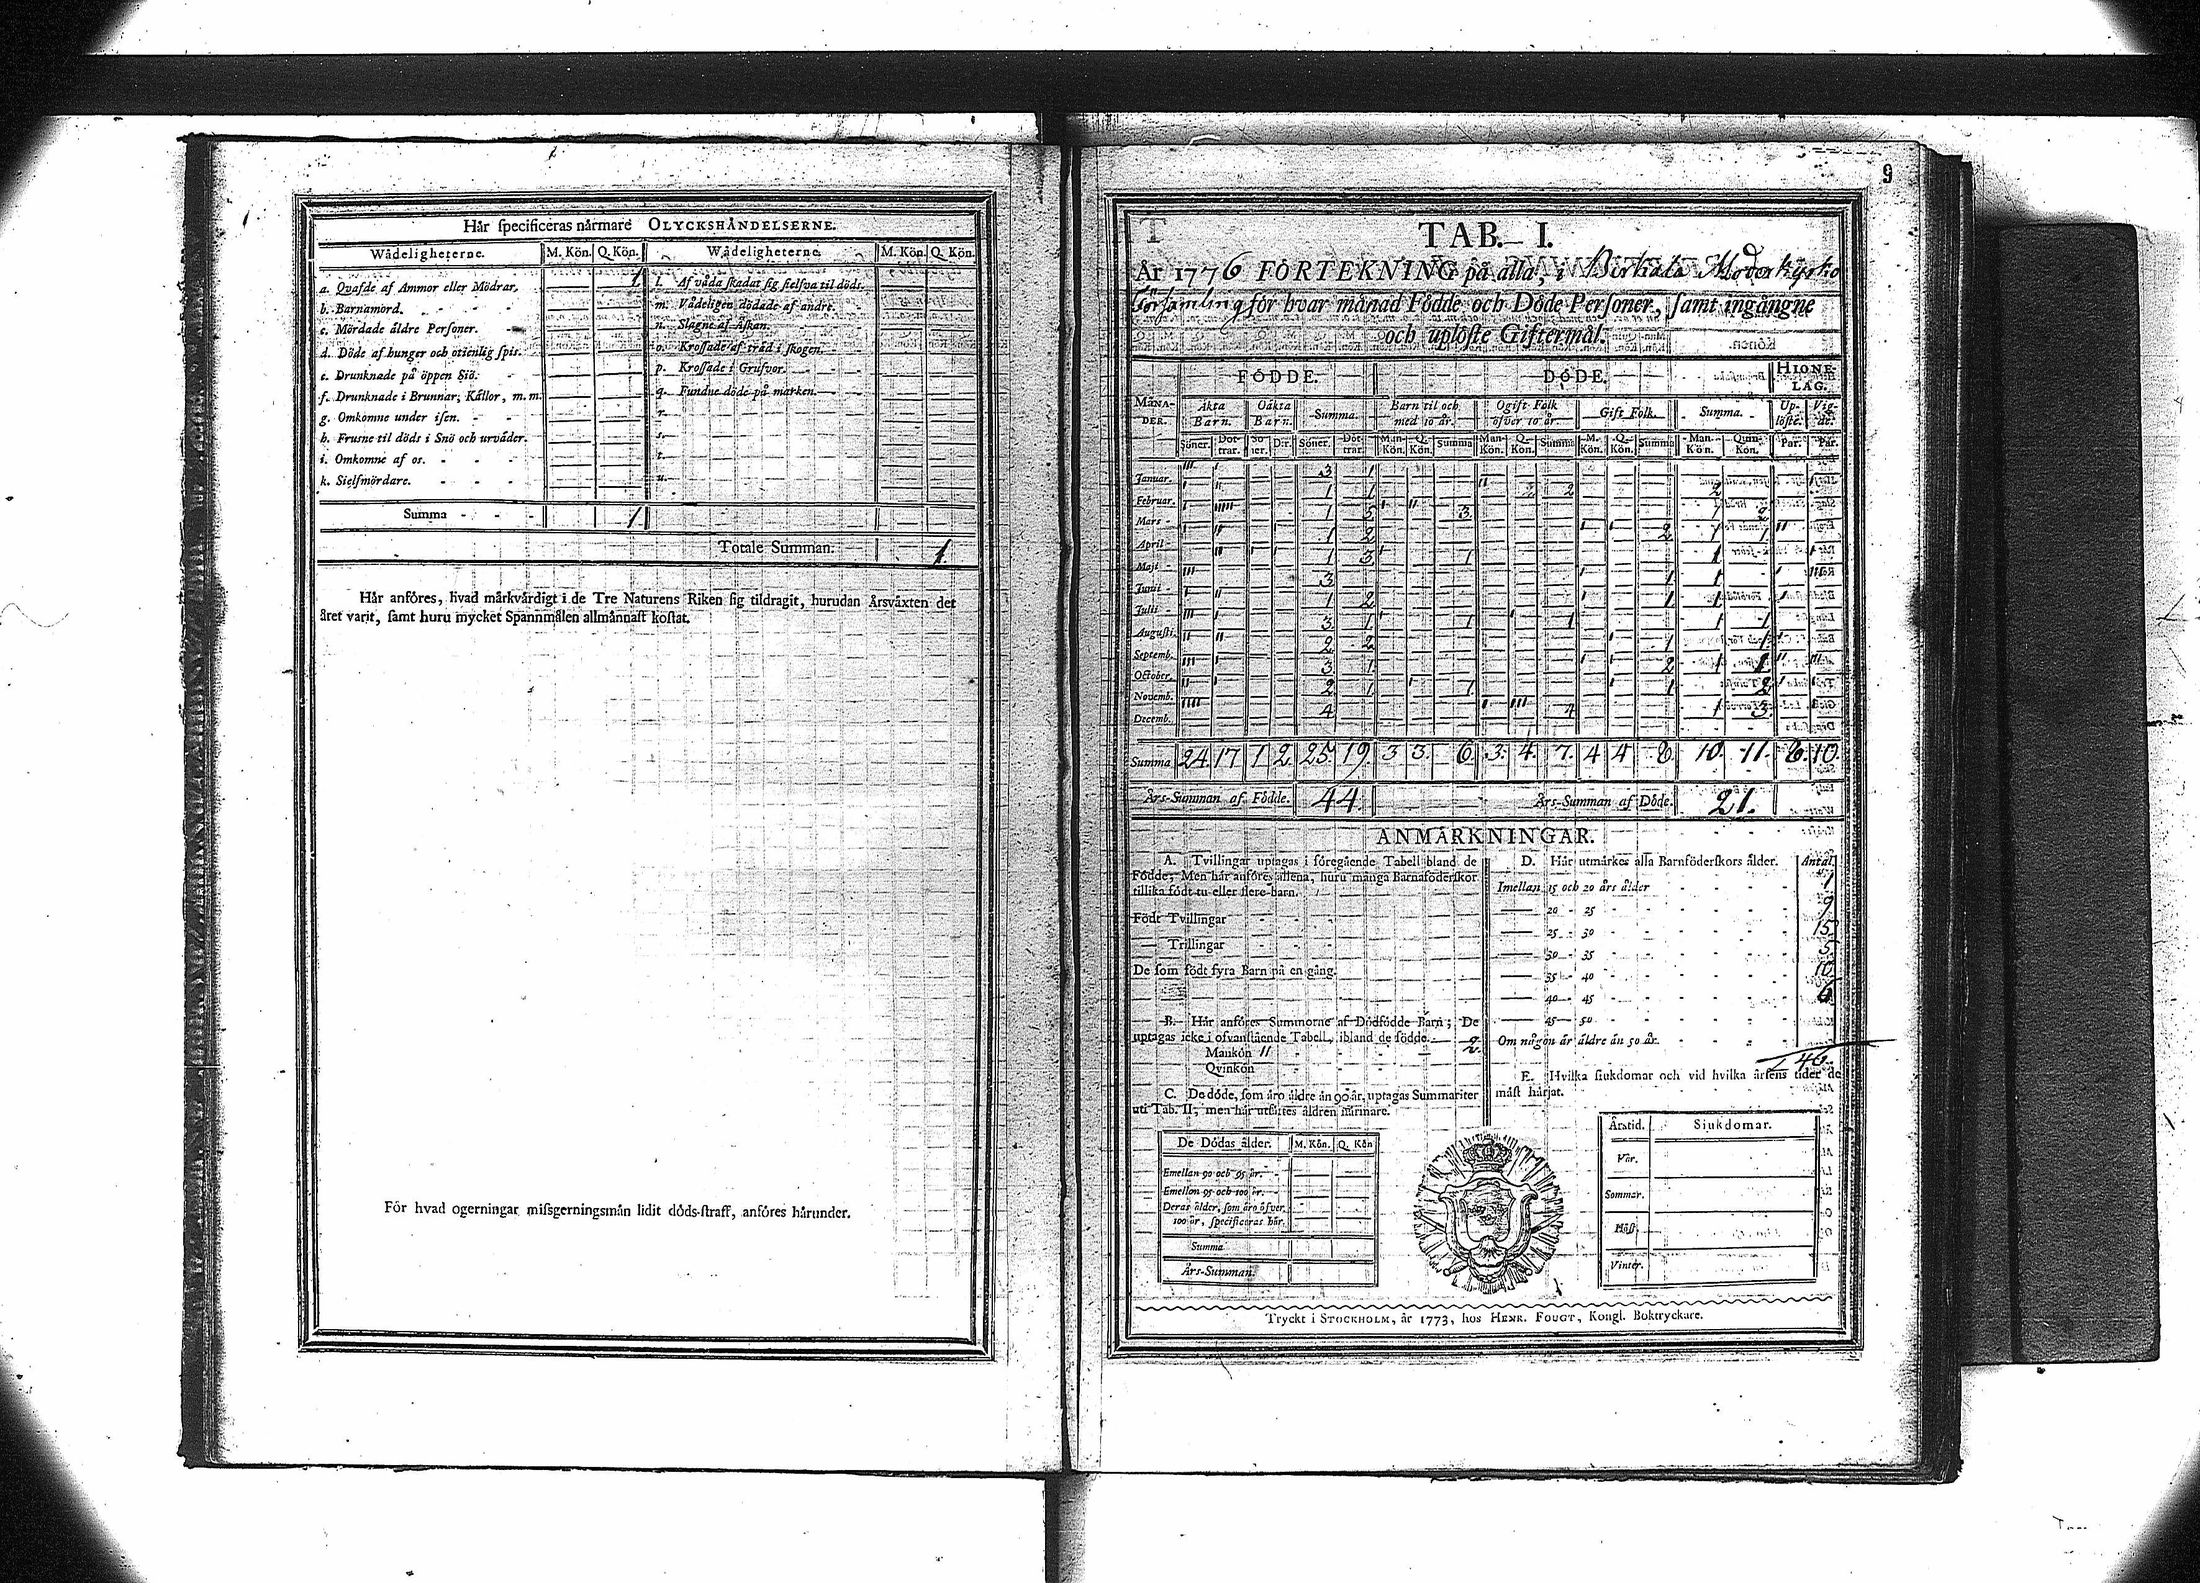 Hår ſpecificeras nårmare OLYCKSHÅNDELSERNE.
Wådeligheterne. M. Kön. Q. Kön. Wådeligheterne. M. Kön. Q. Kön.
a. Qvafde af Ammor eller Mödrar. 1. l. Af våda ſkadat ſig ſielfva til döds.
b. Barnamord. m. Vådeligen dödade af andre.
c. Mördade äldre Perſoner. n. Slagne af Åſkan.
d. Döde af hunger och otienlig ſpis. o. Kroſſade af träd i ſkogen.
e. Drunknade på öppen Siö. p. Kroſſade i Grufvor.
f. Drunknade i Brunnar, Källor, m. m. q. Fundne döde på marken.
g. Omkomne under iſen. r.
h. Fruſne til döds i Snö och urväder. s.
i. Omkomne af os. t.
k. Sielfmördare. u.
Summa 1.
Totale Summan. 1.
Hår anföres, hvad mårkvårdigt i de Tre Naturens Riken ſig tildragit, hurudan Årsvåxten det
året varit, ſamt huru mycket Spannmålen allmånnaſt koſtat.
För hvad ogerningar miſsgerningsmån lidit döds-ſtraff, anföres hårunder.
9
TAB. I.
År 1776 FÖRTEKNING på alla, i Birkala Moderkyrko
Församling för hvar månad Födde och Döde Perſoner, ſamt ingångne
och uplöſte Giftermål.
FÖDDE. DÖDE. HIONE-
LAG.
MÅNA-
DER. Äkta
Barn. Oäkta
Barn. Summa. Barn til och
med 10 år. Ogift Folk
öfver 10 år. Gift Folk. Summa. Up-
löſte. Vig-
de.
Söner. Döt-
trar. Sö-
ner. D:r. Söner. Döt-
trar. Man-
Kön. Q.
Kön. Summa Man-
Kön. Q.
Kön. Summa M.
Kön. Q.
Kön. Summa Man-
Kön. Quin-
Kön. Par. Par.
Januar. 3 1
Februar. 1 1 2 2 2
Mars 1 5 3 1 2
April 1 2 2 1 1
Maji 1 3 1 1
Junii 3 1 1
Julii 1 2 1 1
Auguſti. 3 1 1 1 1 1
Septemb. 2 2 1 1
October. 3 1 2 1 1
Novemb. 2 1 1 1 2
Decemb. 4 4 1 3
Summa 24. 17 1 2 25. 19. 3 3. 6. 3. 4. 7. 4 4 8. 10. 11. 8. 10.
Års-Summan af Födde. 44. Års-Summan af Döde. 21.
ANMÄRKNINGAR.
A. Tvillingar uptagas i föregående Tabell ibland de
Födde; Men hår anföres allena, huru många Barnaföderſkor
tillika födt tu eller flere barn.
Födt Tvillingar
Trillingar
De ſom födt fyra Barn på en gång.
B. Hår anföres Summorne af Dödfödde Barn; De
uptagas icke i ofvanſtående Tabell, ibland de födde.
Mankön 11 2.
Qvinkön
C. De döde, ſom äro äldre än 90 år, uptagas Summariter
uti Tab. II, men hår utſättes åldren nårmare.
De Dödas ålder. M. Kön. Q. Kön
Emellan 90 och 95 år.
Emellan 95 och 100 år.
Deras ålder, ſom äro öfver
100 år, ſpecificeras hår.
Summa
Års-Summan.
D. Hår utmårkes alla Barnföderſkors ålder. Antal
Imellan 15 och 20 års ålder 1
20 - 25 9
25 - 30 15
30 - 35 5
35 - 40 10
40 - 45 6
45 - 50
Om någon är äldre än 50 år.
46.
E. Hvilka ſiukdomar och vid hvilka årſens tider de
måſt hårjat.
Årstid. Sjukdomar.
Vår.
Sommar.
Höſt.
Vinter.
Tryckt i STOCKHOLM, år 1773, hos HENR. FOUGT, Kongl. Boktryckare.